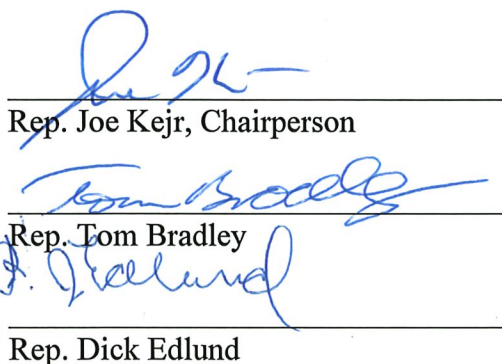 Rep. Joe Kejr, Chairperson
Tom Bradley
Rep. Tom Bradley
Edlund
Rep. Dick Edlund